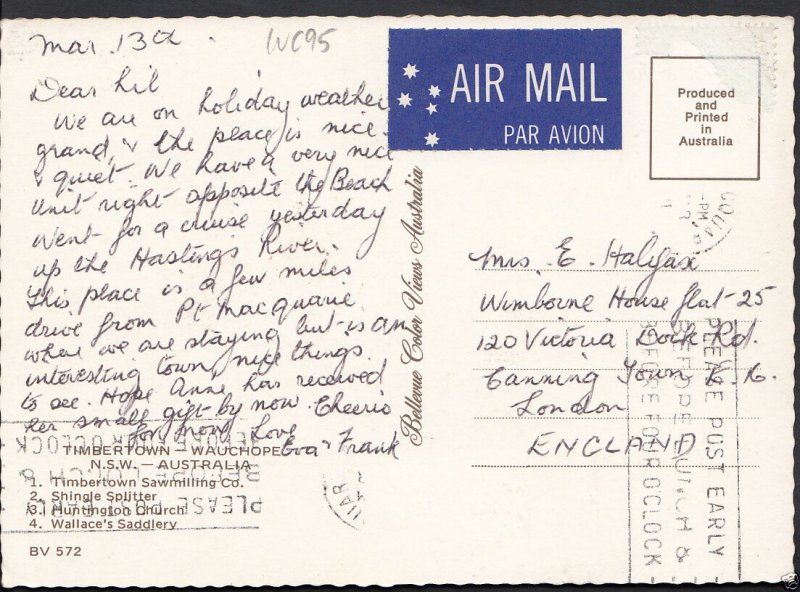 Mar 13th
WC95
Dear Lil
We are on holiday weather
grand, & the place is nice
& quiet. We have a very nice
unit right opposite the Beach
Went for a cruise yesterday
up the Hastings River.
This place is a few miles
drive from Pt Macquarie
where we are staying but is an
interesting town, nice things
to see. Hope Anne has received
her small gift by now. Cheerio
for now Love
Eva & Frank
TIMBERTOWN - WAUCHOPE
N.S.W. - AUSTRALIA
1. Timbertown Sawmilling Co.
2. Shingle Splitter
3. Huntington Church
4. Wallace's Saddlery
BV 572
Bellevue Color Views Australia
AIR MAIL
PAR AVION
Produced
and
Printed
in
Australia
Mrs. E. Halifax
Wimborne House flat 25
120 Victoria Dock Rd.
Canning Town E. 16.
London
ENGLAND
PLEASE POST EARLY -
BEFORE LUNCH &
BEFORE FOUR O'CLOCK -